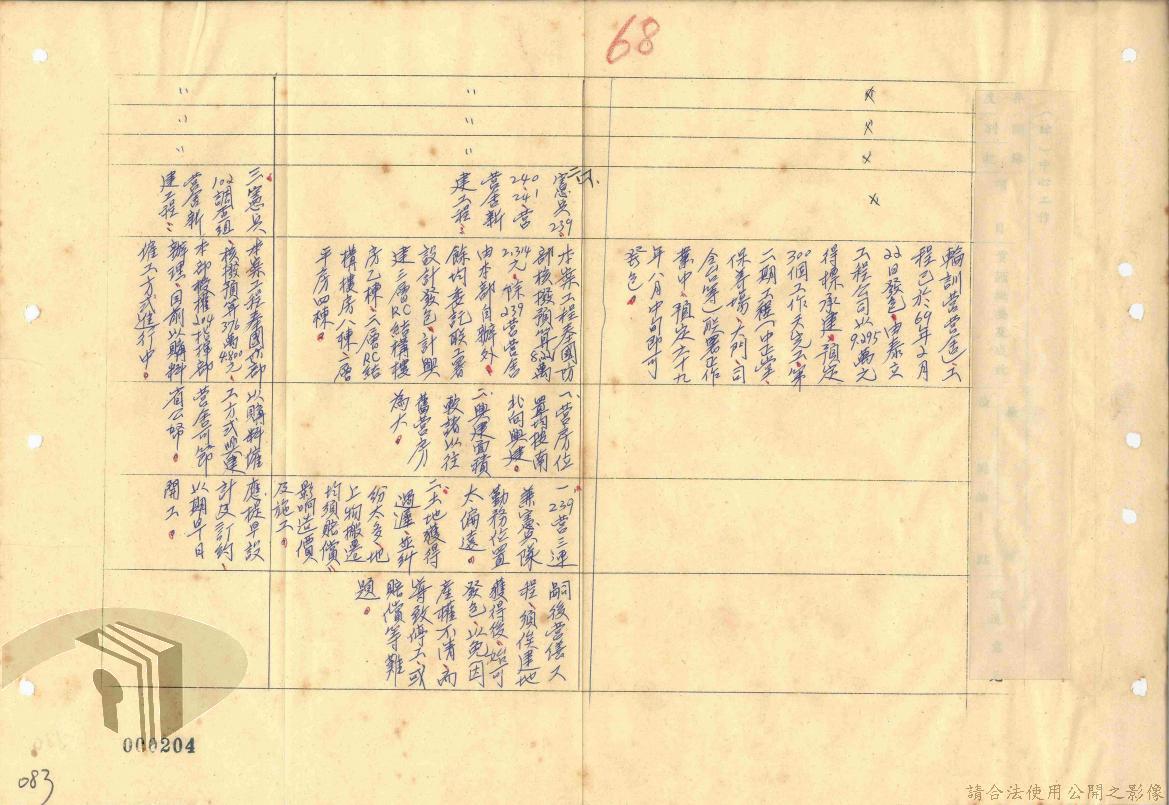 68
〃
〃
〃
〃
〃
〃
輪訓營營舍工
程已於69年2月
22日發包由泰立
工程公司以9.295萬元
得標承建預定
300個工作天完工、第
二期工程(中正堂、
保養場、大門、司
令台等)聯署作
業中、預定六十九
年八月中旬即可
發包。
二、憲兵239、
240、241營
營舍新
建工程:
本案工程奉國防
部核撥預算
元、除239營營舍
由本部自辦外
餘均委託聯工署
設計發包、計興
建三層RC結構樓
房乙棟、二層RC結
構樓房八棟、一層
平房四棟。
一、營房位
置均採南
北向興建。
二、興建面積
較諸以往
舊營房
為大。
一、239營三連
兼憲兵隊
勤務位置
太偏遠。
二、土地獲得
過遲、並糾
紛太多、地
上物搬遷
均須賠償、
影响造價
及施工。
嗣後營繕工
程、須俟建地
獲得後、始可
發包、以免因
產權不清而
導致停工、或
賠償等難
題。
三、憲兵
102調查組
營舍新
建工程:
本案工程奉國防部
核撥預算376萬4800元、
本部授權204指揮部
辦理、目前以購料
僱工方式進行中。
以購料僱
工方式興建
營舍可節
省公帑。
應提早設
計及訂約、
以期早日
開工。
000204
083
請合法使用公開之影像